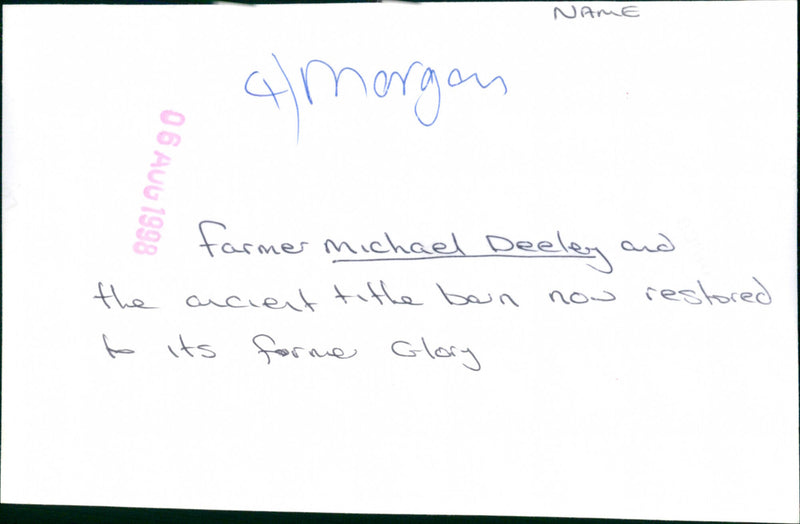 NAME
Morgan
06 AUG 1998
Farmer Michael Deeley and
the ancient tithe barn now restored
to its former Glory